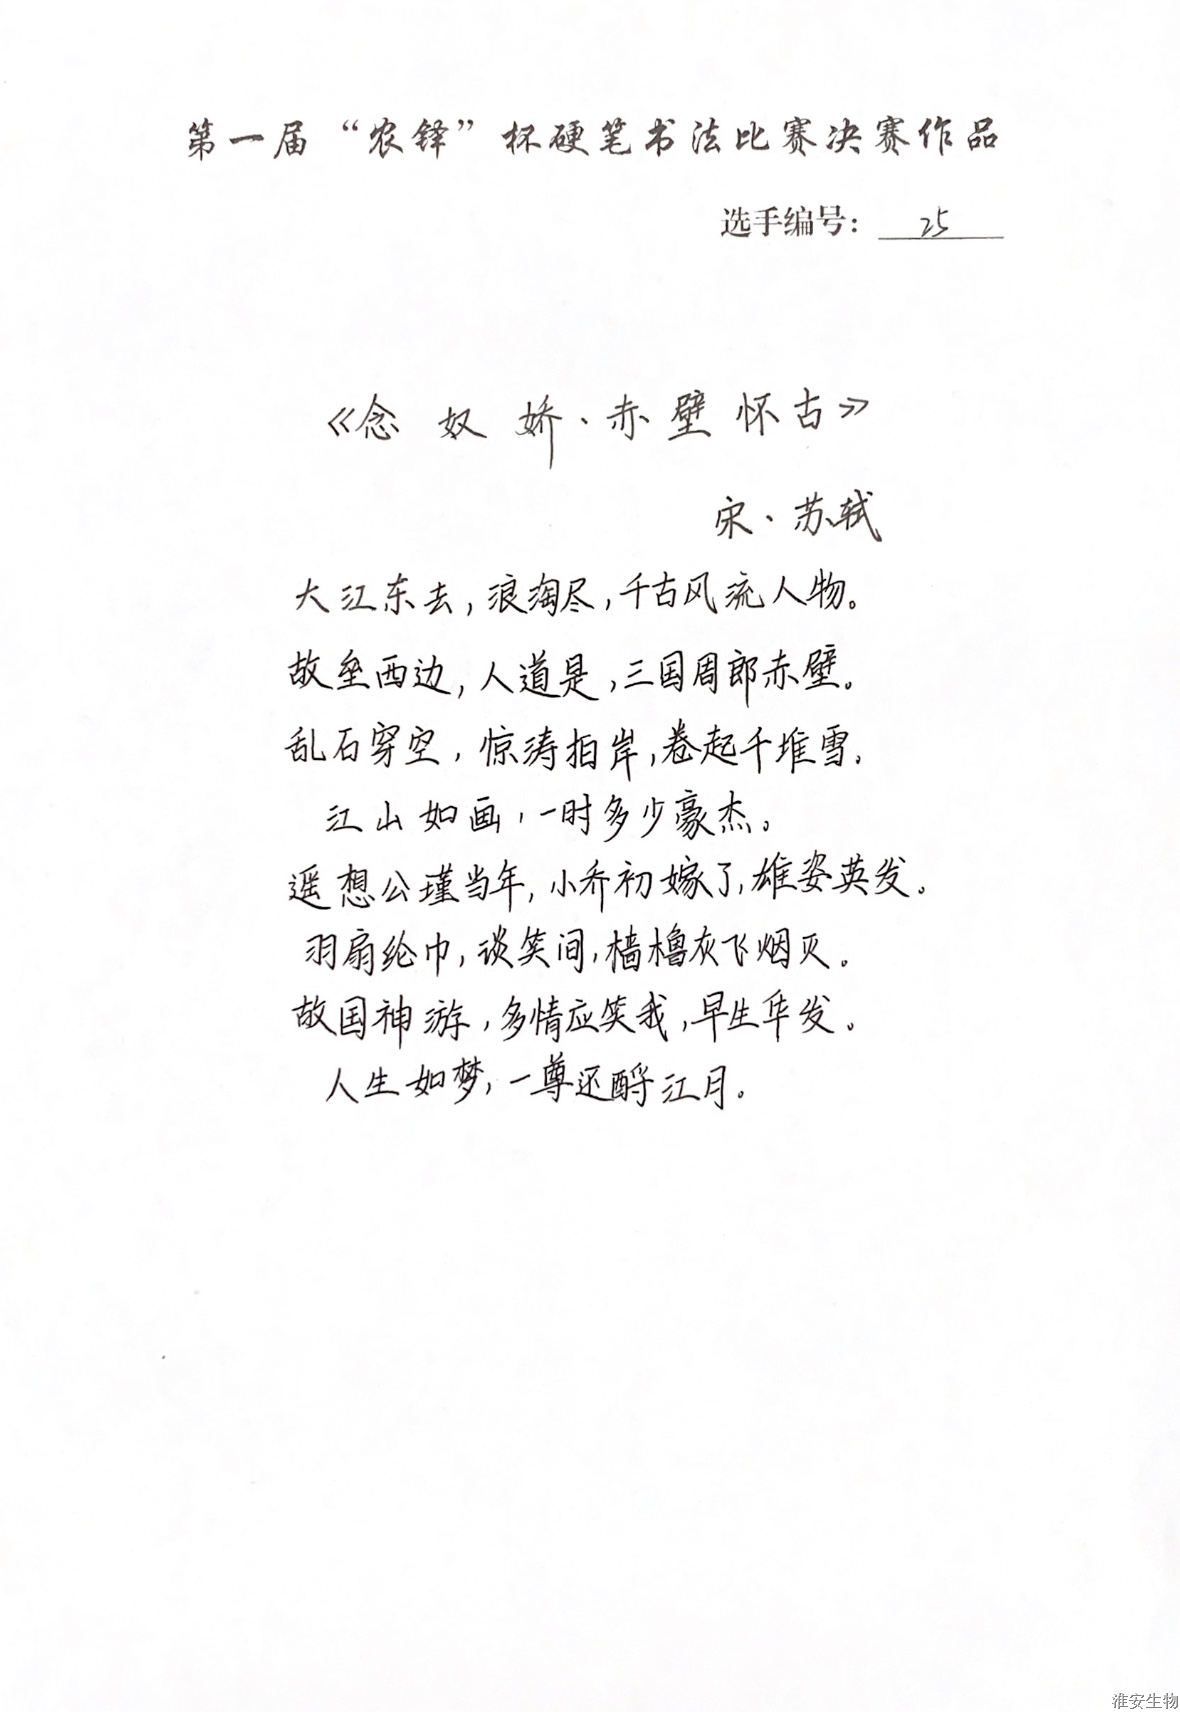 第一届“农铎”杯硬笔书法比赛决赛作品
选手编号： 25
《念奴娇·赤壁怀古》
宋·苏轼
大江东去，浪淘尽，千古风流人物。
故垒西边，人道是，三国周郎赤壁。
乱石穿空，惊涛拍岸，卷起千堆雪，
江山如画，一时多少豪杰。
遥想公瑾当年，小乔初嫁了，雄姿英发。
羽扇纶巾，谈笑间，樯橹灰飞烟灭。
故国神游，多情应笑我，早生华发。
人生如梦，一尊还酹江月。
淮安生物